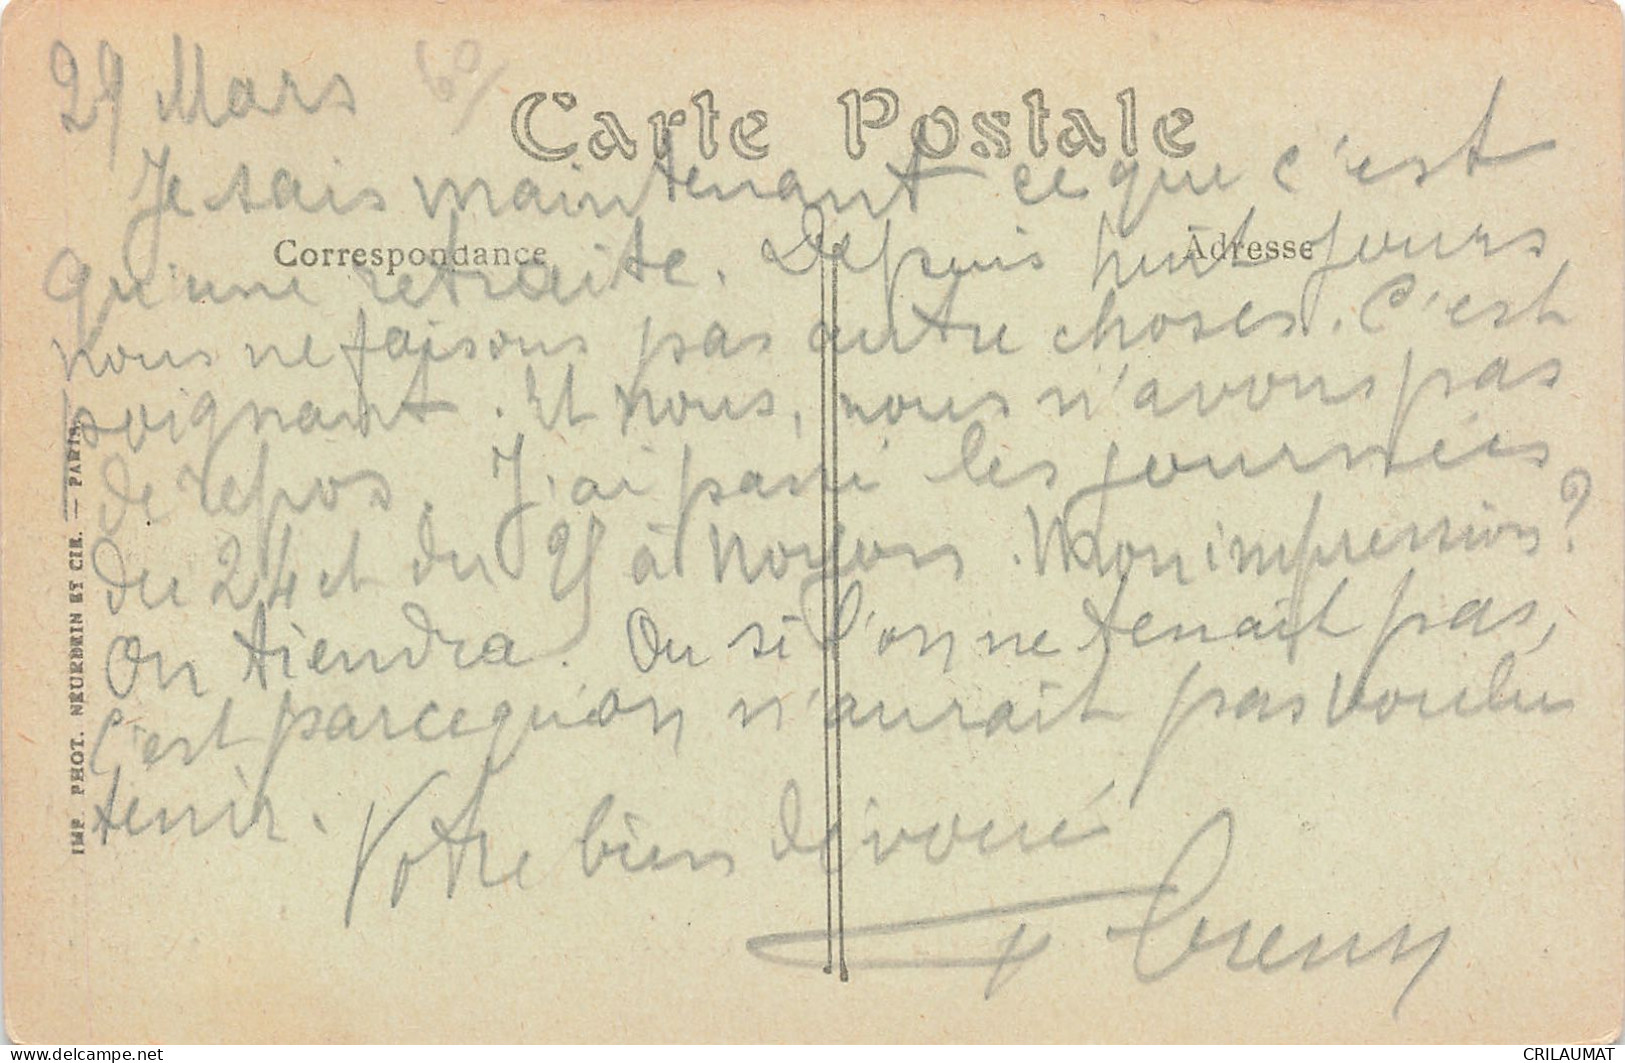 29 Mars 60/
Carte Postale
Je sais maintenant ce que c'est
Correspondance
Adresse
qu'une retraite. Depuis huit jours
nous ne faisons pas autre choses. C'est
poignant. Et nous, nous n'avons pas
de repos. J'ai passé les journées
du 24 et du 25 à Noyon. Mon impression?
On tiendra. Ou si l'on ne tenait pas,
C'est parcequ'on n'aurait pas voulu
tenir.
Votre bien dévoué
IMP. PHOT. NEURDEIN ET CIE. — PARIS.
delcampe.net
CRILAUMAT